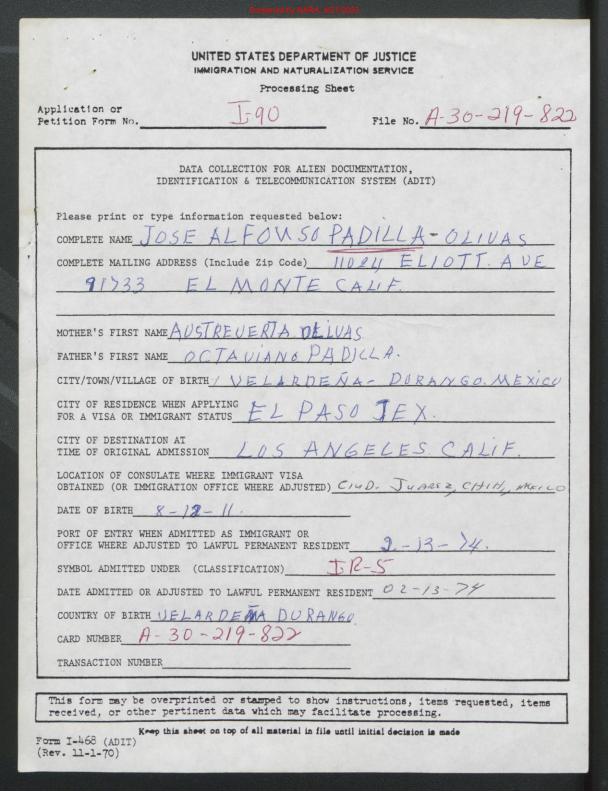 UNITED STATES DEPARTMENT OF JUSTICE
IMMIGRATION AND NATURALIZATION SERVICE
Processing Sheet
Application or
Petition Form No. I-90 File No. A-30-219-822
DATA COLLECTION FOR ALIEN DOCUMENTATION,
IDENTIFICATION & TELECOMMUNICATION SYSTEM (ADIT)
Please print or type information requested below:
COMPLETE NAME JOSE ALFONSO PADILLA-OLIVAS
COMPLETE MAILING ADDRESS (Include Zip Code) ELIOTT. AVE
91733 EL MONTE CALIF.
MOTHER'S FIRST NAME AUSTREVERTA OLIVAS
FATHER'S FIRST NAME OCTAVIANO PADILLA.
CITY/TOWN/VILLAGE OF BIRTH VELARDEÑA- DURANGO. MEXICO
CITY OF RESIDENCE WHEN APPLYING
FOR A VISA OR IMMIGRANT STATUS EL PASO TEX.
CITY OF DESTINATION AT
TIME OF ORIGINAL ADMISSION LOS ANGELES. CALIF.
LOCATION OF CONSULATE WHERE IMMIGRANT VISA
OBTAINED (OR IMMIGRATION OFFICE WHERE ADJUSTED) CIUD. JUAREZ, CHIH, MEXICO
DATE OF BIRTH 8-12-11.
PORT OF ENTRY WHEN ADMITTED AS IMMIGRANT OR
OFFICE WHERE ADJUSTED TO LAWFUL PERMANENT RESIDENT 2-13-74.
SYMBOL ADMITTED UNDER (CLASSIFICATION) IR-5
DATE ADMITTED OR ADJUSTED TO LAWFUL PERMANENT RESIDENT 02-13-74
COUNTRY OF BIRTH VELARDEÑA DURANGO
CARD NUMBER A-30-219-822
TRANSACTION NUMBER
This form may be overprinted or stamped to show instructions, items requested, items
received, or other pertinent data which may facilitate processing.
Keep this sheet on top of all material in file until initial decision is made
Form I-468 (ADIT)
(Rev. 11-1-70)